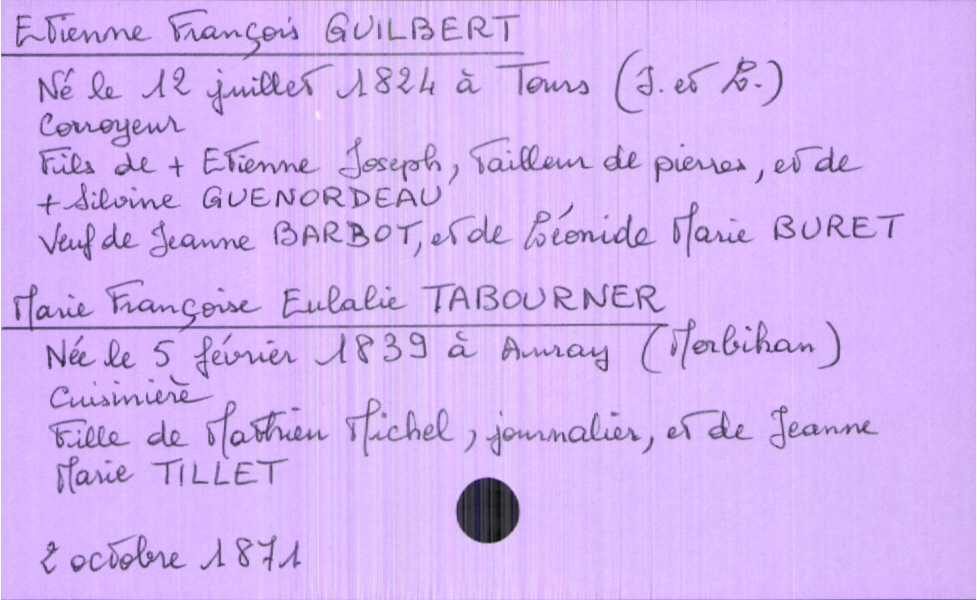 Etienne François GUILBERT
Né le 12 juillet 1824 à Tours (I. et L.)
Corroyeur
Fils de + Etienne Joseph, tailleur de pierres, et de
+ Silvine GUENORDEAU
Veuf de Jeanne BARBOT, et de Léonide Marie BURET
Marie Françoise Eulalie TABOURNER
Née le 5 février 1839 à Auray (Morbihan)
Cuisinière
Fille de Mathieu Michel, journalier, et de Jeanne
Marie TILLET
2 octobre 1871